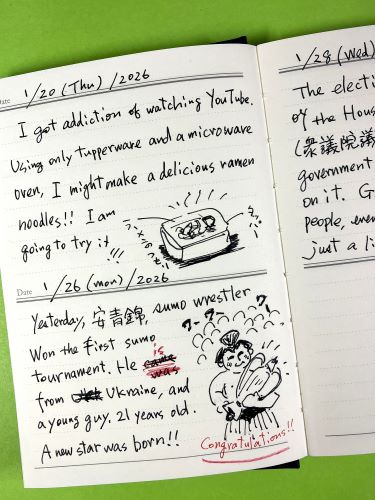 Date 1/20 (Thu) / 2026
I got addiction of watching YouTube.
Using only Tupperware and a microwave
oven, I might make a delicious ramen
noodles!! I am
going to try it !!!
Date 1/26 (mon) / 2026
Yesterday, 安青錦, sumo wrestler
Won the first sumo
tournament. He is
was
from Ukraine, and
a young guy. 21 years old.
A new star was born!!
ワー ワー
Congratulations!!
1/28 (Wed)
The electi
of the Hous
(衆議院議
government
on it. G
people, even
just a li